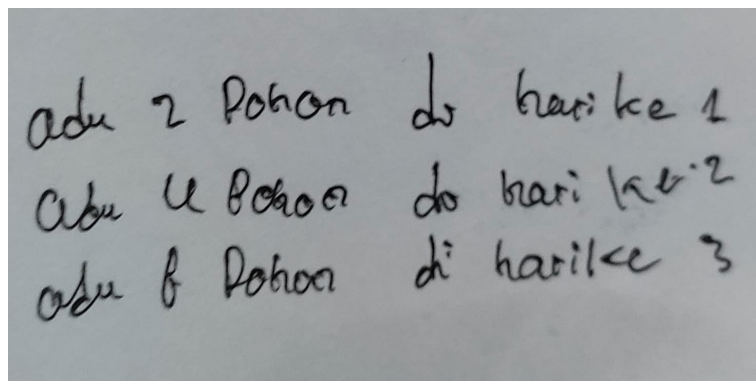 adu 2 Pohon di hari ke 1
abu 4 Pohon do hari ke 2
adu 6 Pohon di harike 3